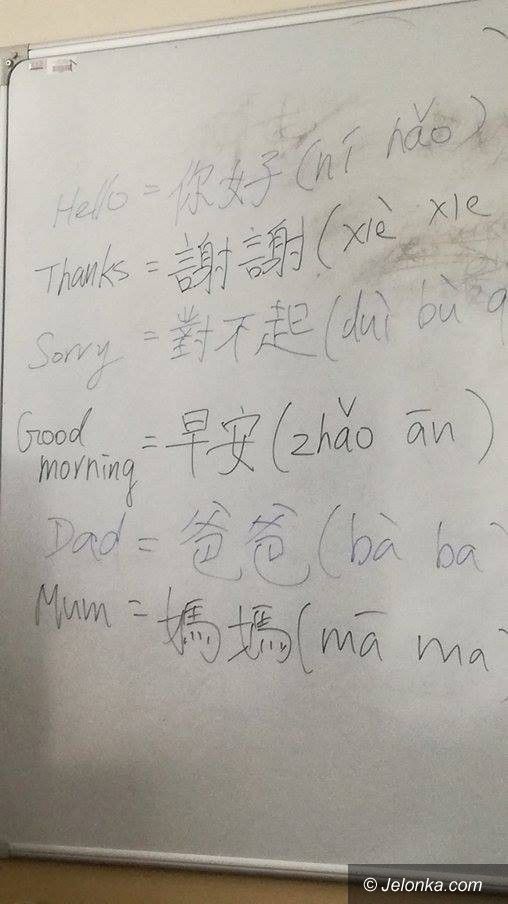 Hello = 你好 (nī hǎo)
Thanks = 謝謝 (xiè xie
Sorry = 對不起 (duì bù q
Good
morning = 早安 (zhǎo ān)
Dad = 爸爸 (bà ba)
Mum = 媽媽 (mā ma)
© Jelonka.com